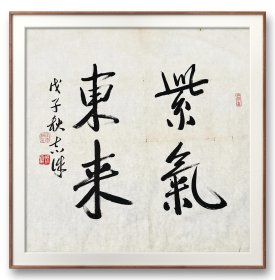 紫氣
東来
戊子秋志成